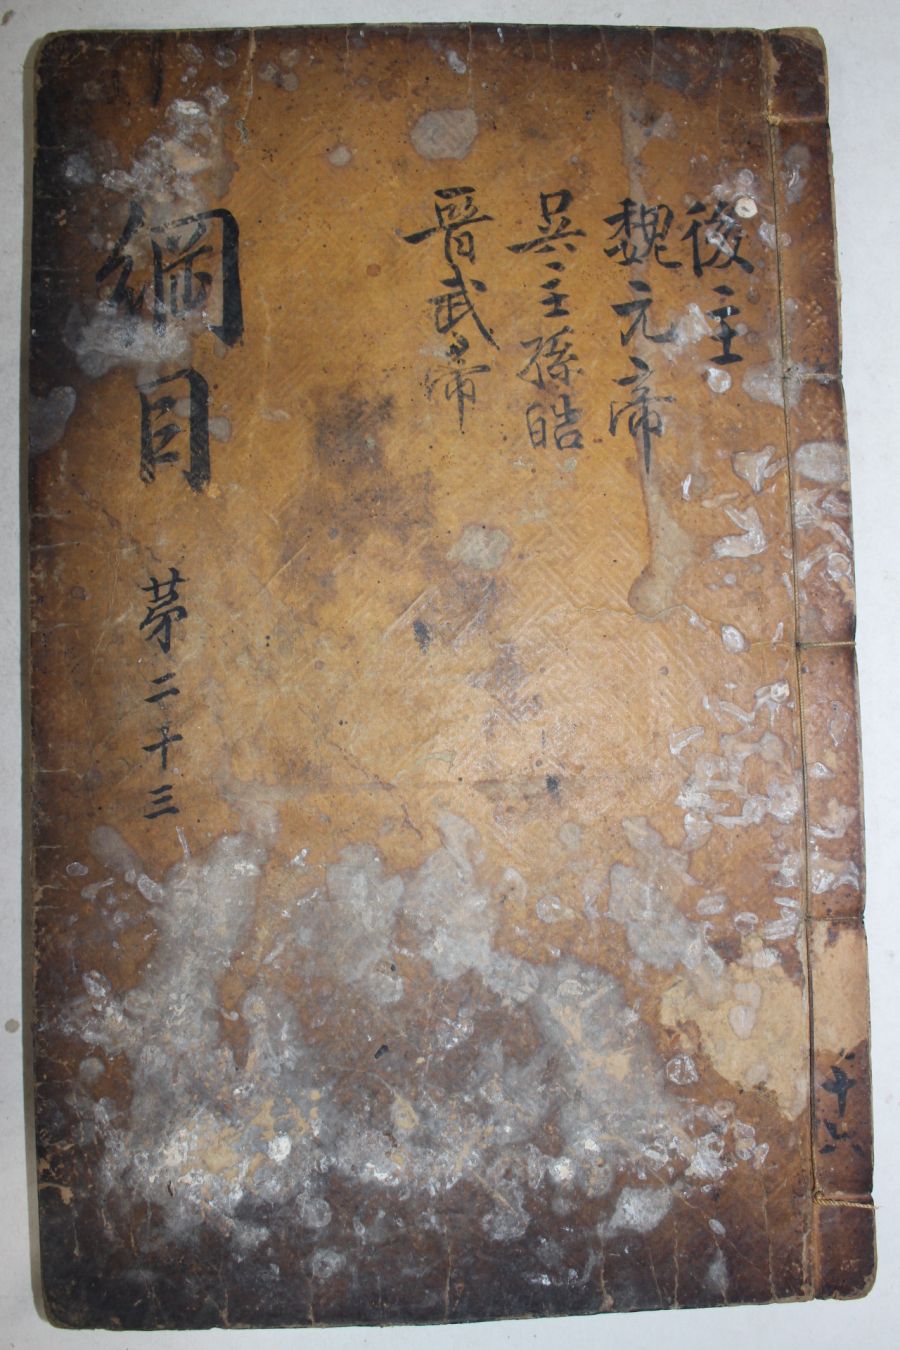 後主
魏元帝
吳主孫皓
晉武帝
綱目
苐二十三
十六